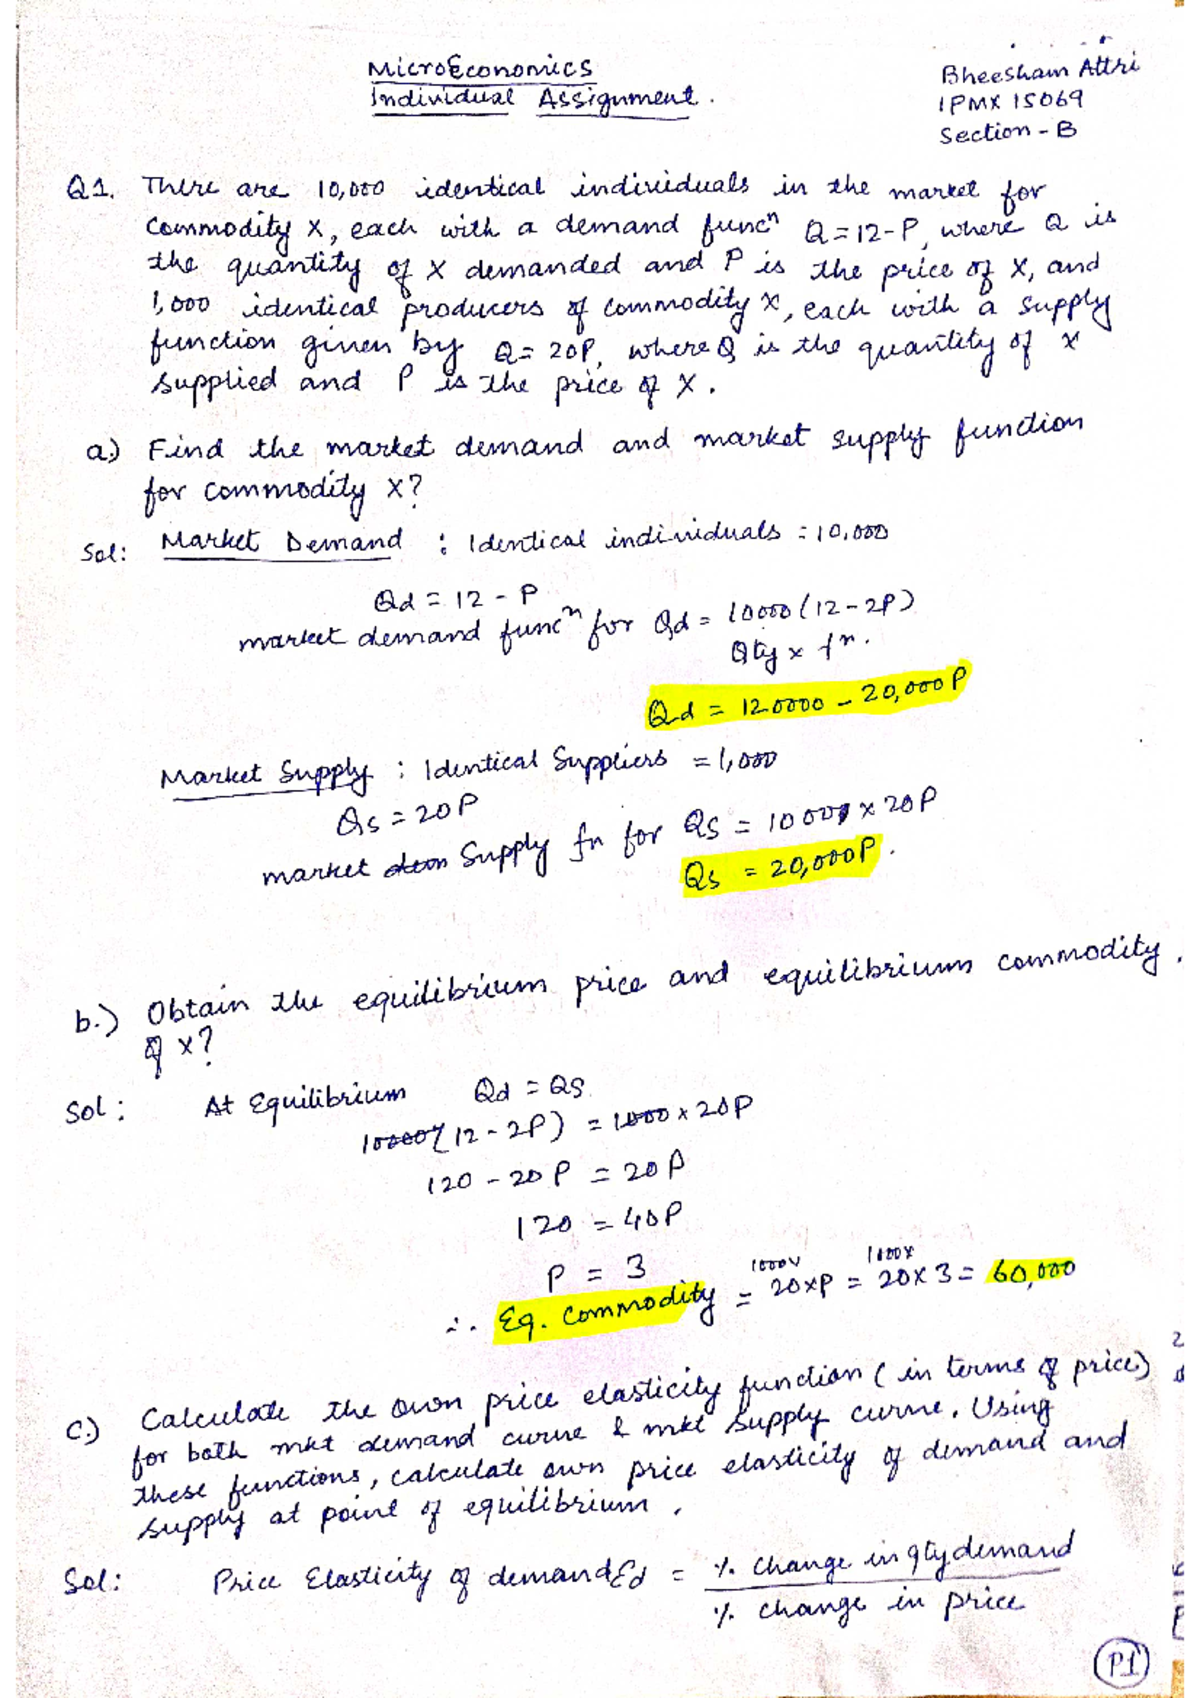 MicroEconomics
Individual Assignment.
Bheesham Attri
IPMX 15069
Section - B
Q1. There are 10,000 identical individuals in the market for
commodity X, each with a demand funcⁿ Q=12-P, where Q is
the quantity of X demanded and P is the price of X, and
1,000 identical producers of commodity X, each with a supply
function given by Q= 20P, where Q is the quantity of X
supplied and P is the price of X.
a.) Find the market demand and market supply function
for commodity X?
Sol: Market Demand : Identical individuals = 10,000
Qd = 12 - P
market demand funcⁿ for Qd = 10000 (12-2P)
Qty x fⁿ.
Qd = 120000 - 20,000P
Market Supply : Identical Suppliers = 1,000
Qs = 20P
market Supply fn for Qs = 1000 x 20P
Qs = 20,000P.
b.) Obtain the equilibrium price and equilibrium commodity.
of X?
Sol: At Equilibrium Qd = QS
10000(12-2P) = 1000 x 20P
120 - 20P = 20P
120 = 40P
P = 3
∴ Eq. Commodity = 1000x 20xP = 1000x 20x3 = 60,000
C.) Calculate the own price elasticity function (in terms of price)
for both mkt demand curve & mkt supply curve. Using
these functions, calculate own price elasticity of demand and
supply at point of equilibrium.
Sol: Price Elasticity of demand Ed = % change in qty demand
% change in price
P1